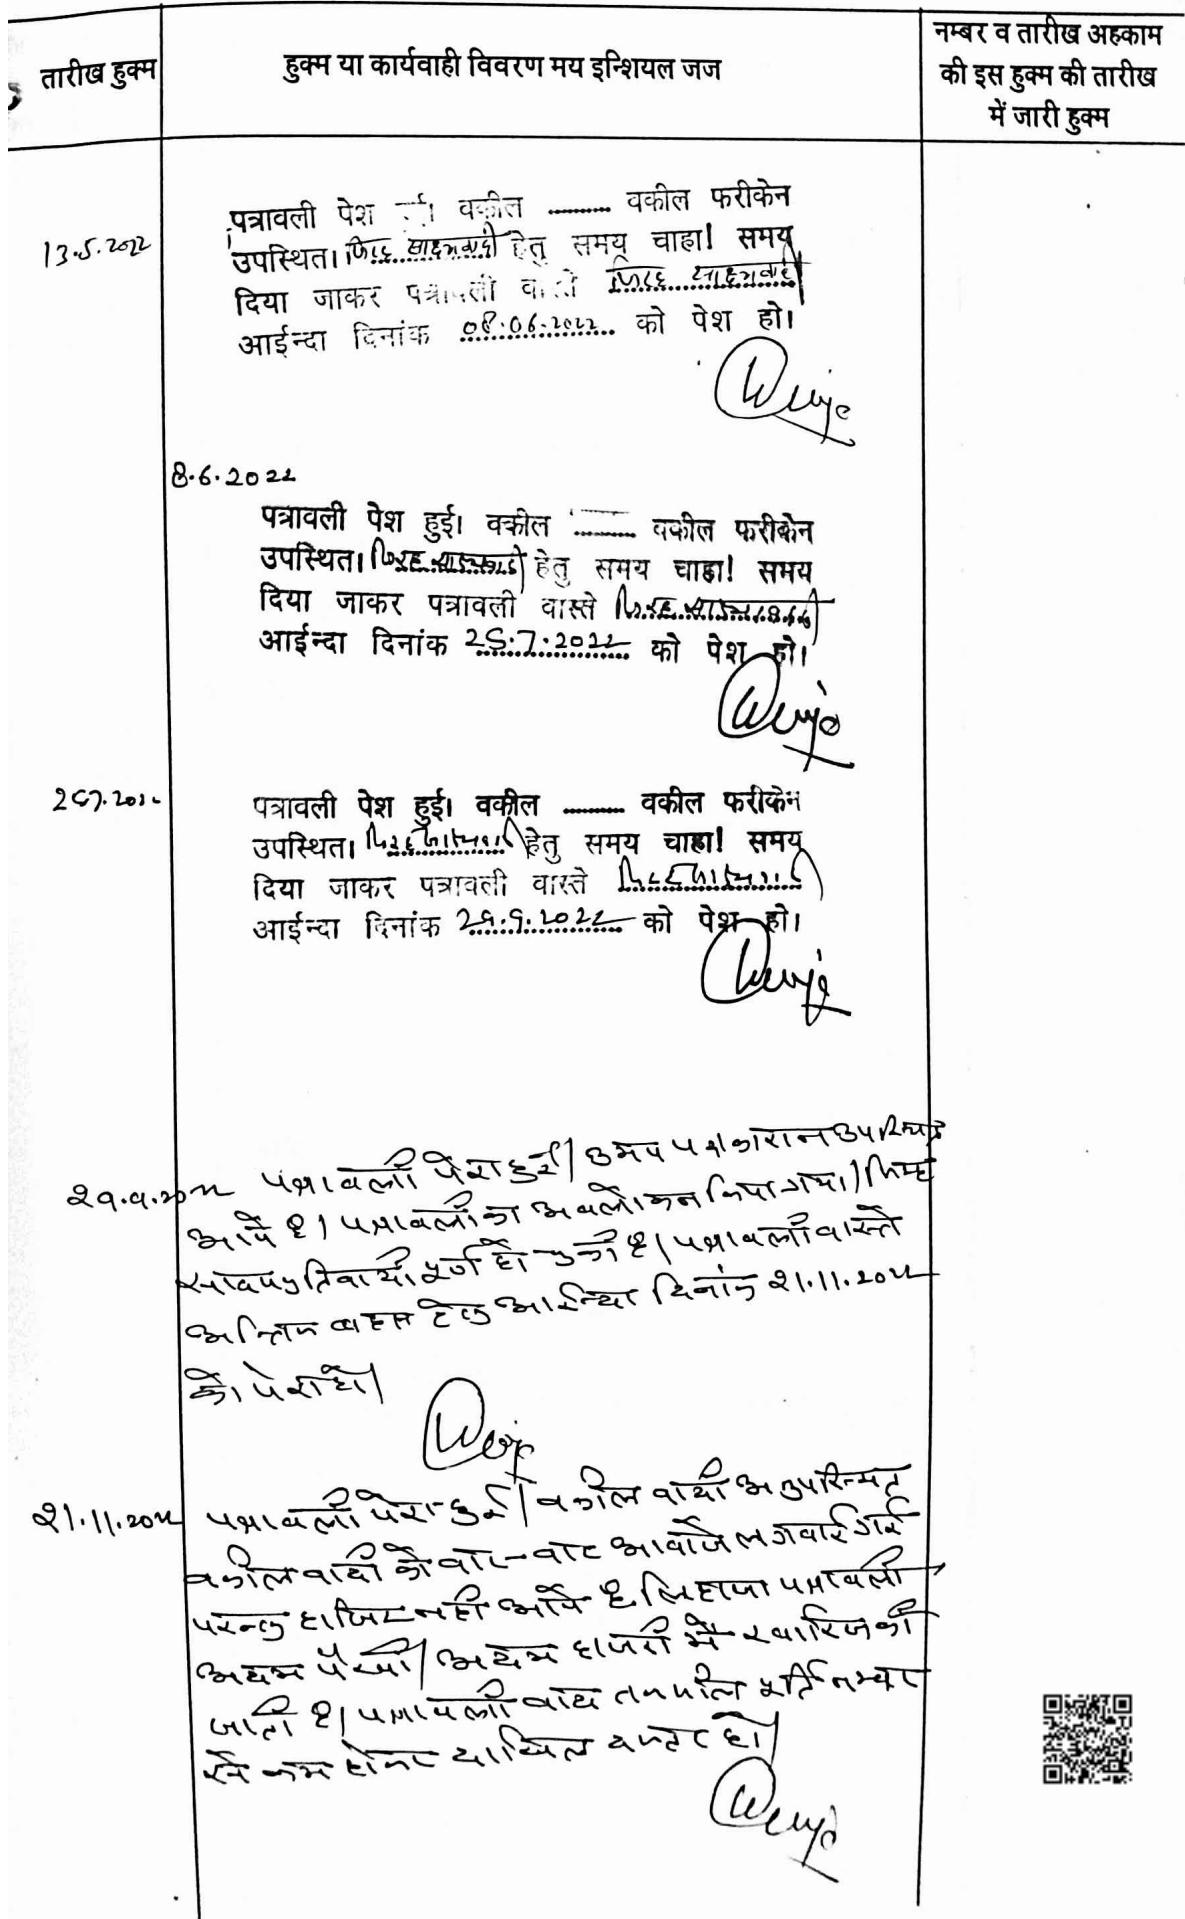 तारीख हुक्म
हुक्म या कार्यवाही विवरण मय इन्शियल जज
नम्बर व तारीख अहकाम
की इस हुक्म की तारीख
में जारी हुक्म
13.5.2022
पत्रावली पेश वकील .......... वकील फरीकेन
उपस्थित। हेतु समय चाहा! समय
दिया जाकर पत्रावली वास्ते
आईन्दा दिनांक 08.06.2022 को पेश हो।
8.6.2022
पत्रावली पेश हुई। वकील .......... वकील फरीकेन
उपस्थित। हेतु समय चाहा! समय
दिया जाकर पत्रावली वास्ते
आईन्दा दिनांक 25.7.2022 को पेश हो।
पत्रावली पेश हुई। वकील .......... वकील फरीकेन
उपस्थित। हेतु समय चाहा! समय
दिया जाकर पत्रावली वास्ते
आईन्दा दिनांक 29.9.2022 को पेश हो।
पत्रावली पेश हुई। उभय पक्षकारान उपस्थित
आये है। पत्रावली का अवलोकन किया गया।
पूर्ण हो चुकी है। पत्रावली वास्ते
अन्तिम बहस हेतु आईन्दा दिनांक 21.11.2022
को पेश हो।
21.11.2022
पत्रावली पेश हुई। वकील वादी अनुपस्थित
वकील वादी को बार-बार आवाजे लगवाई गई
परन्तु हाजिर नही आये है लिहाजा पत्रावली
अदम पैरवी/अदम हाजरी मे खारिज की
जाती है। पत्रावली बाद तकमील पूर्ति नम्बर
से कम होकर दाखिल दफ्तर हो।